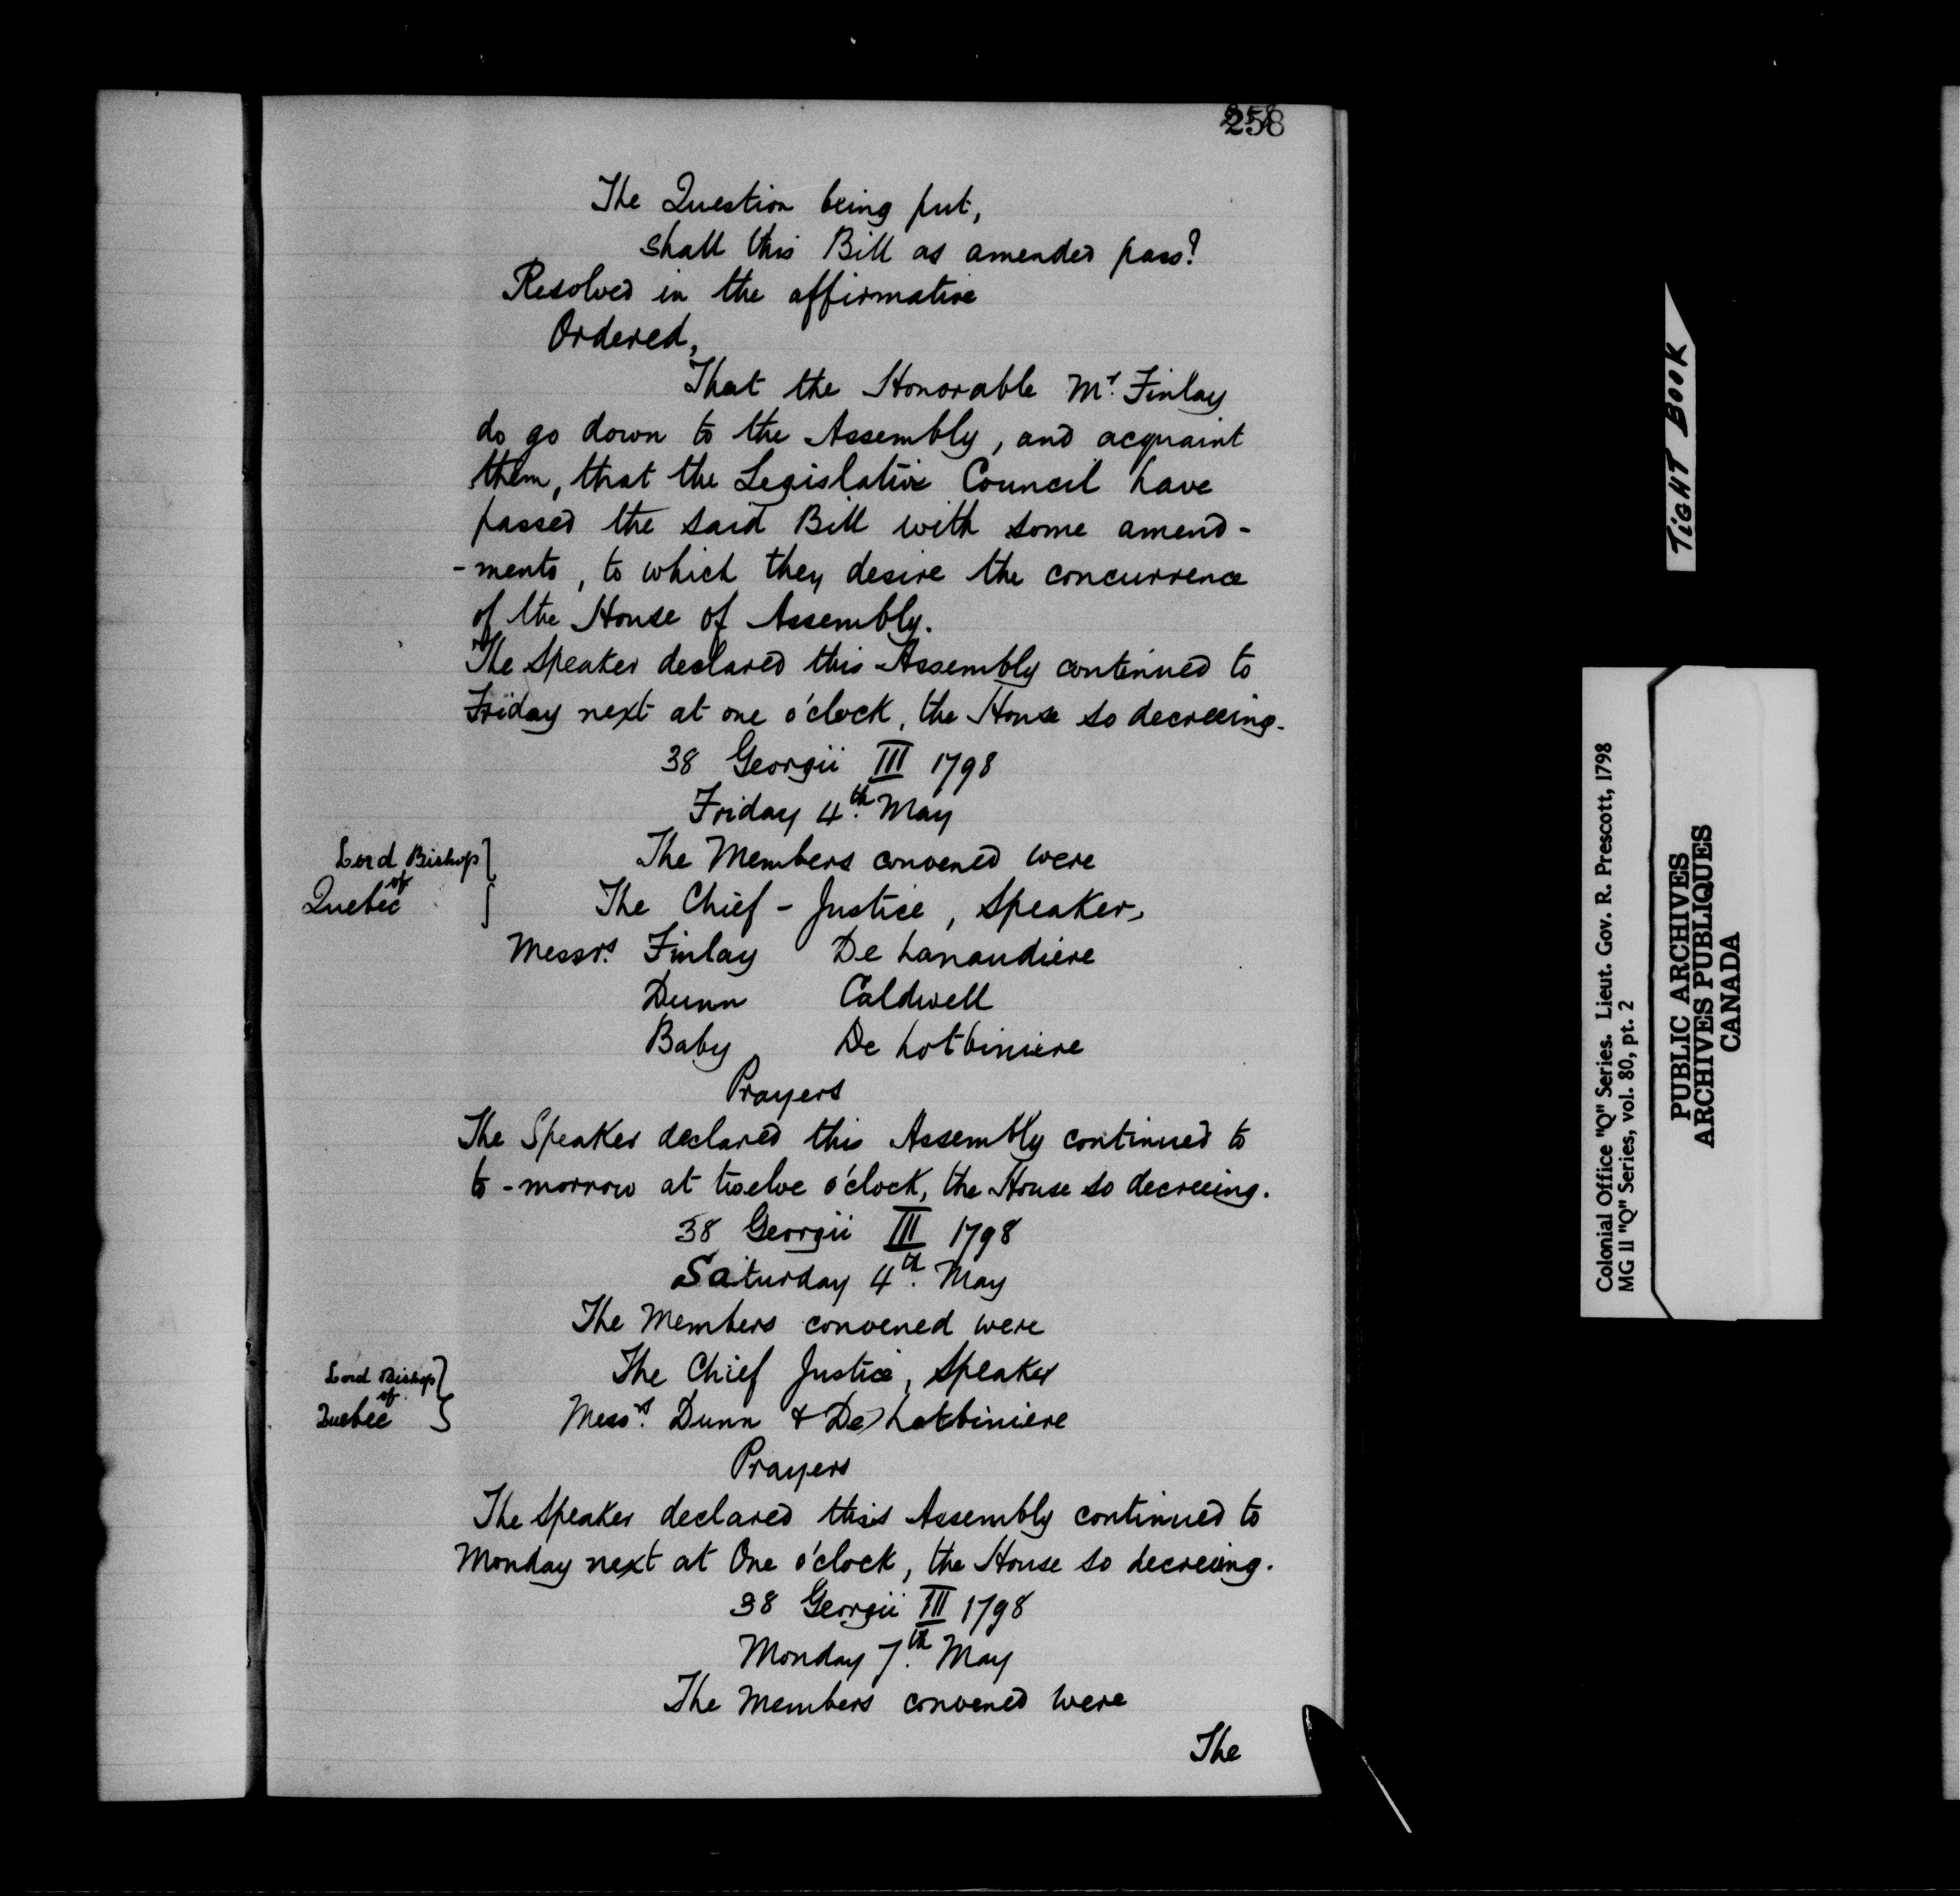 258
The Question being put,
shall this Bill as amended pass?
Resolved in the affirmative
Ordered,
That the Honorable Mr. Finlay
do go down to the Assembly, and acquaint
them, that the Legislative Council have
passed the said Bill with some amend-
-ments, to which they desire the concurrence
of the House of Assembly.
The Speaker declared this Assembly continued to
Friday next at one o'clock, the House so decreeing.
38 Georgii III 1798
Friday 4th. May
Lord Bishop
of
Quebec
The Members convened were
The Chief-Justice, Speaker,
Messrs. Finlay De Lanaudiere
Dunn Caldwell
Baby De Lotbiniere
Prayers
The Speaker declared this Assembly continued to
to-morrow at twelve o'clock, the House so decreeing.
38 Georgii III 1798
Saturday 4th. May
The Members convened were
Lord Bishop
of
Quebec
The Chief Justice, Speaker
Messrs. Dunn & De Lotbiniere
Prayers
The Speaker declared this Assembly continued to
Monday next at One o'clock, the House so decreeing.
38 Georgii III 1798
Monday 7th. May
The Members convened were
The
TIGHT BOOK
Colonial Office "Q" Series. Lieut. Gov. R. Prescott, 1798
MG 11 "Q" Series, vol. 80, pt. 2
PUBLIC ARCHIVES
ARCHIVES PUBLIQUES
CANADA